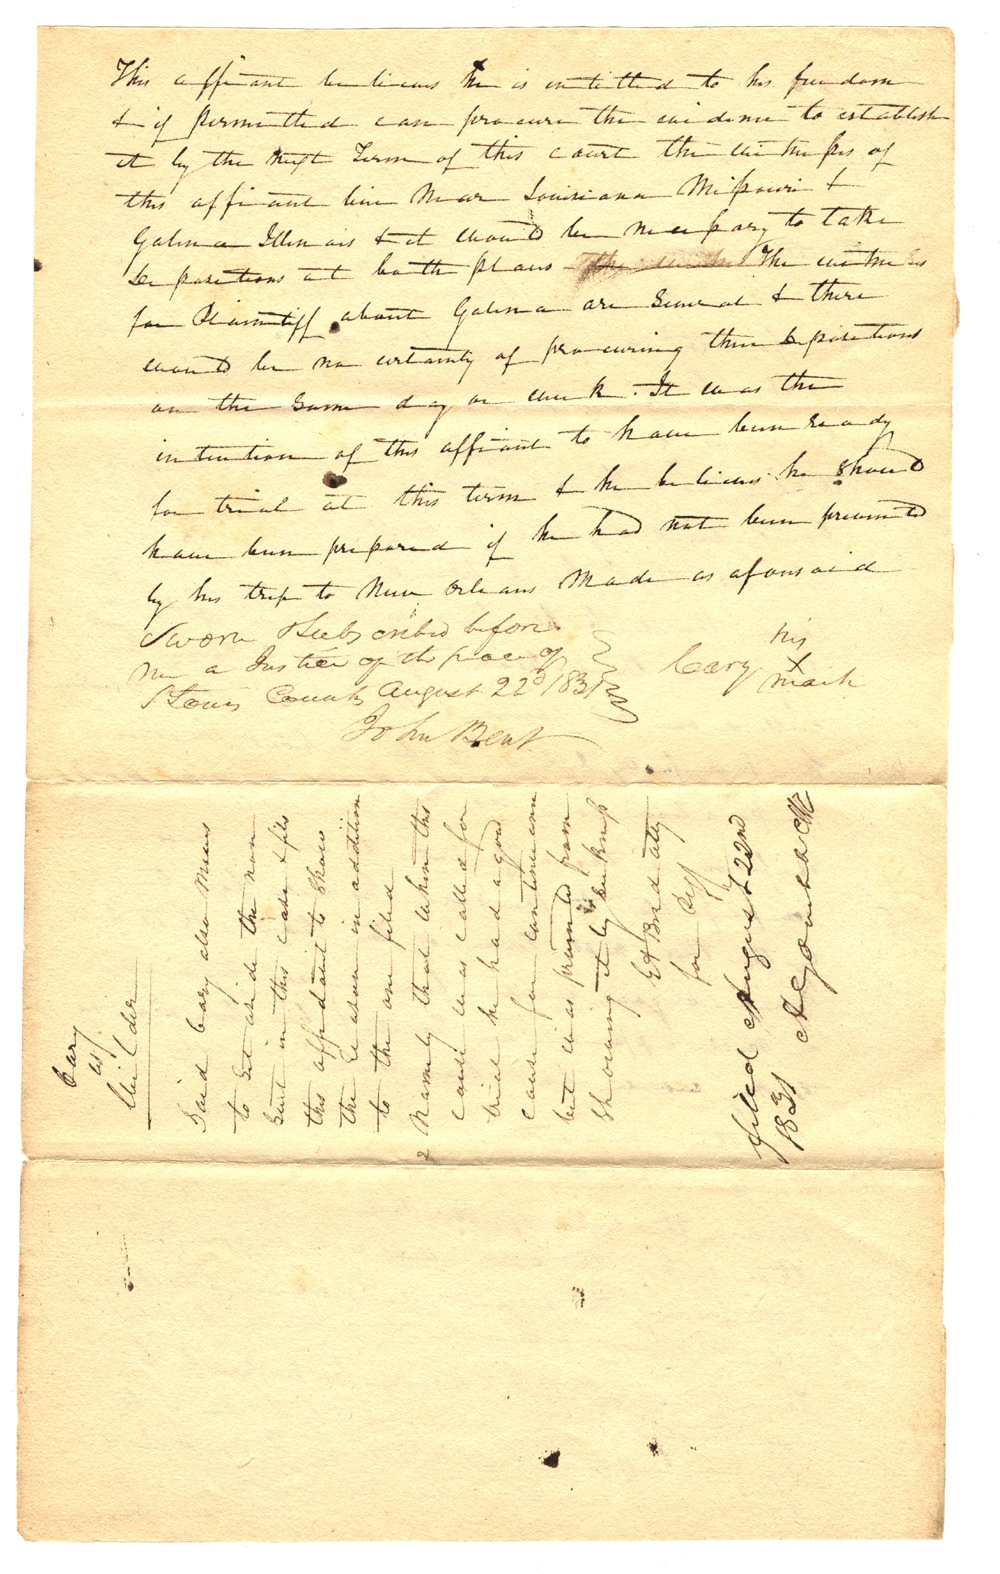 This affiant believes he is intitled to his freedom
& if permitted can procure the evidence to establish
it by the next Term of this court the witnesses of
this affiant live near Louisiana Missouri &
Galena Illinois & it would be necessary to take
depositions at both places The witnesses
for Plaintiff about Galena are several & there
would be no certainty of procuring their depositions
on the same day or week. It was the
intention of this affiant to have been ready
for trial at this term & he believes he should
have been prepared if he had not been prevented
by his trip to New Orleans made as aforesaid
Sworn & Subscribed before
me a Justice of the peace of
St Louis County August 22d 1831
John Bent
his
Cary X
mark
Cary
vs
Wilder
Said Cary also moves
to set aside the non
suit in this case & files
this affidavit to show
the reason in addition
to the one filed
& Namely that when this
cause was called for
trial he had a good
cause for continuance
but was prevented from
showing it by sickness
atty
for Plff
filed August 22nd
1831 A Gamble Clk